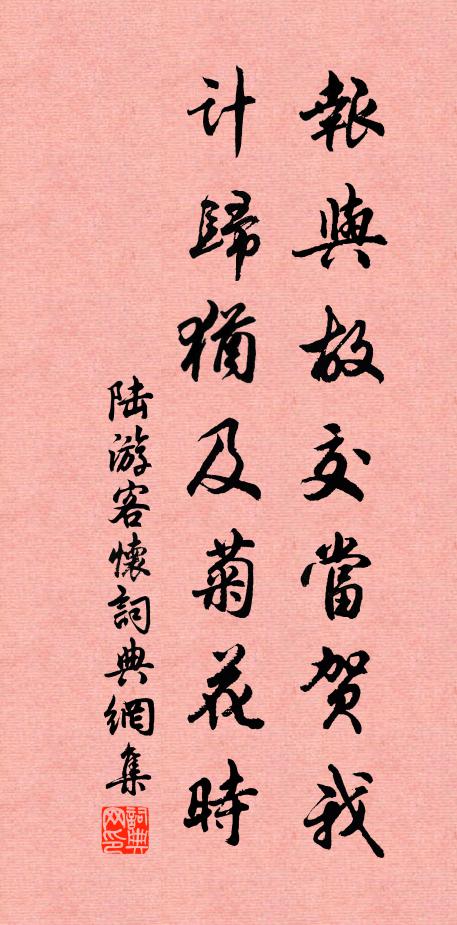 報與故交當賀我
計歸猶及菊花時
陆游客懷詞典網集
詞典网印